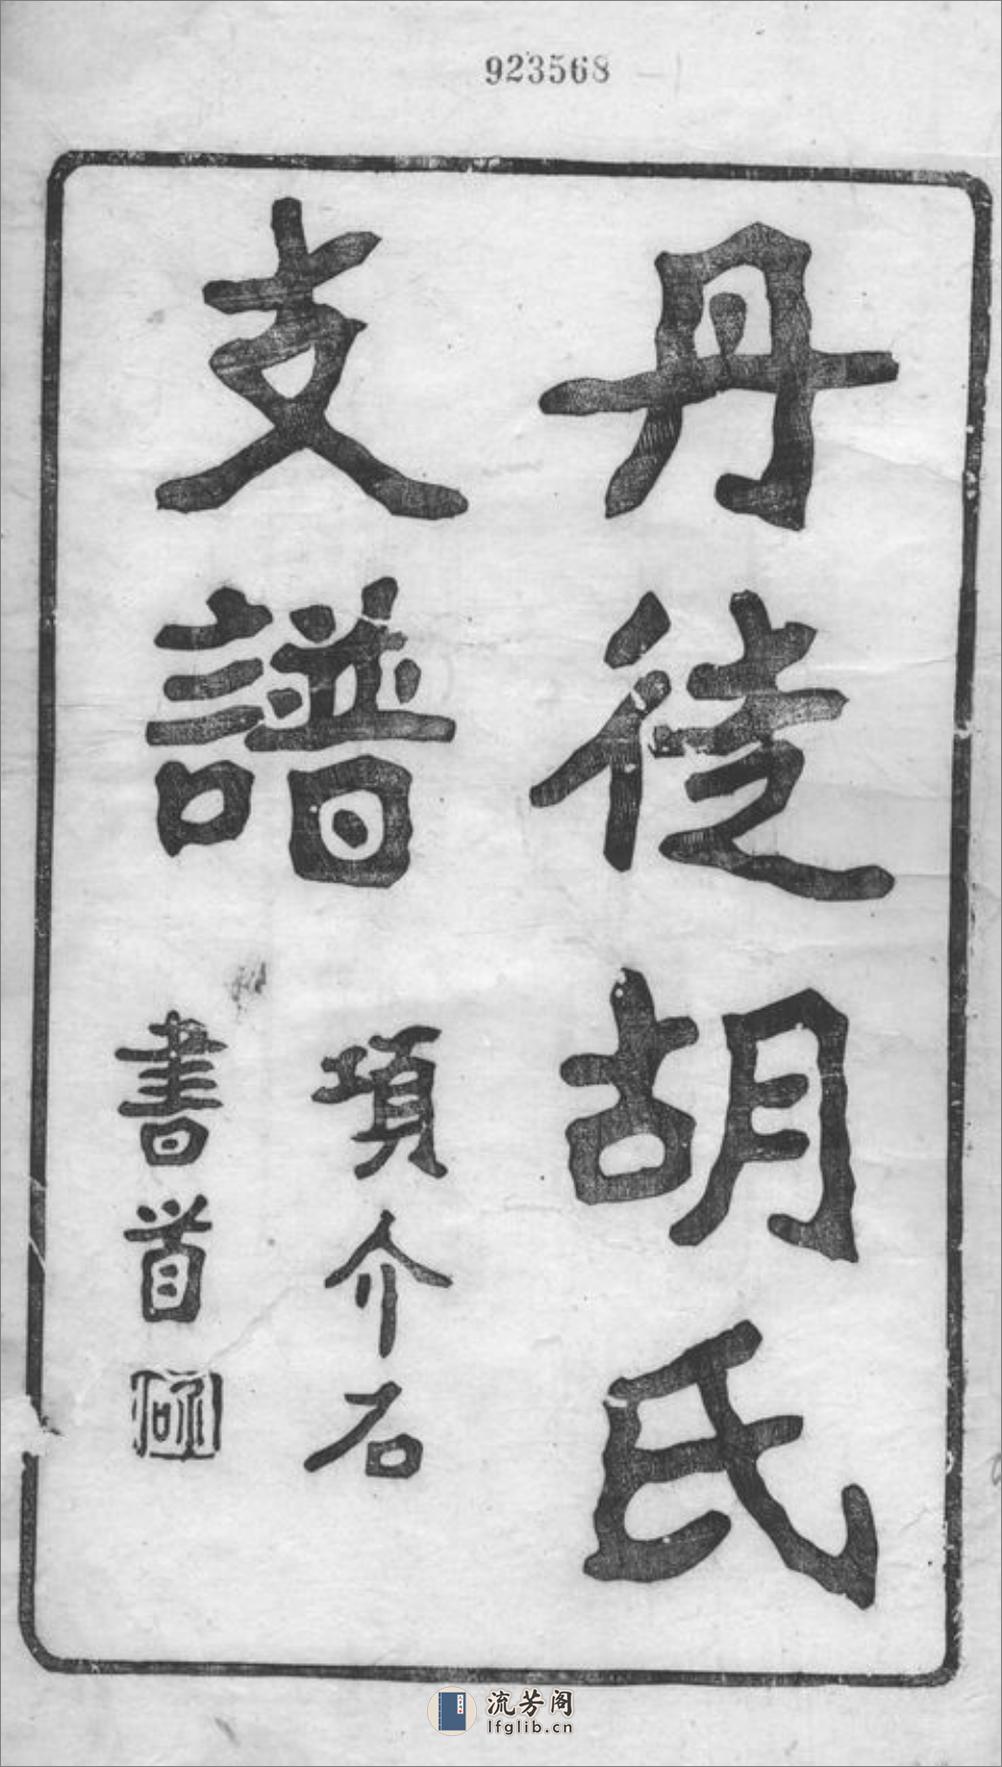 923568
丹徒胡氏
支譜
項介石
書首
流芳阁
lfglib.cn